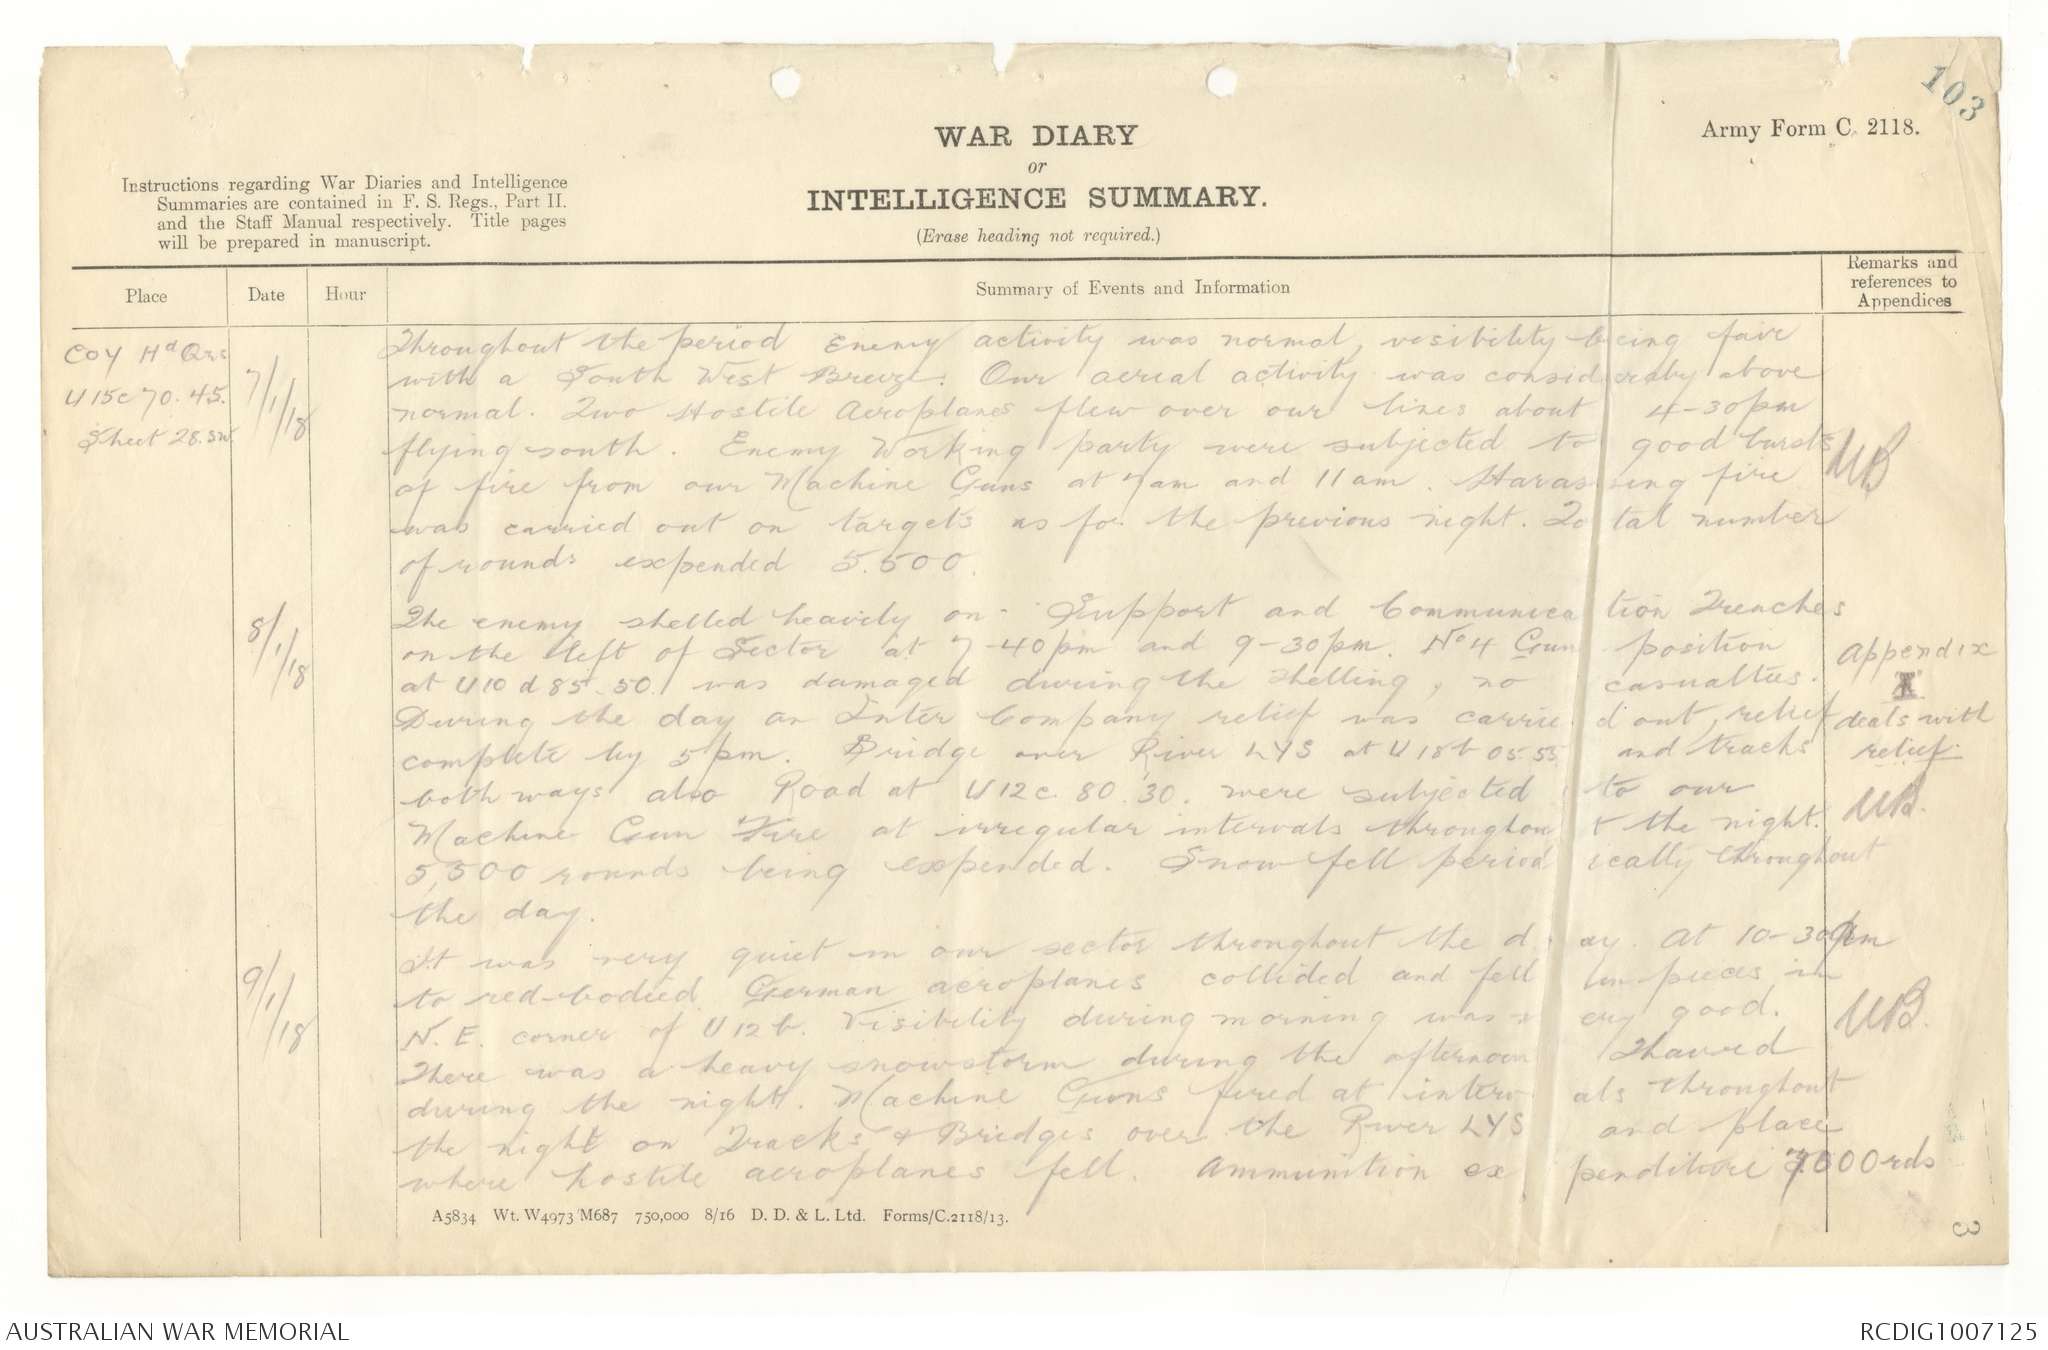 103
WAR DIARY
or
INTELLIGENCE SUMMARY.
(Erase heading not required.)
Army Form C. 2118.
Instructions regarding War Diaries and Intelligence
Summaries are contained in F. S. Regs., Part II.
and the Staff Manual respectively. Title pages
will be prepared in manuscript.
Place
Date
Hour
Summary of Events and Information
Remarks and
references to
Appendices
Coy Hd Qrs
U15c 70.45.
Sheet 28.SW.
7/1/18
Throughout the period Enemy activity was normal, visibility being fair
with a South West Breeze. Our aerial activity was consideraby above
normal. Two Hostile Aeroplanes flew over our lines about 4-30pm
flying south. Enemy Working party were subjected to good bursts
of fire from our Machine Guns at 7am and 11am. Harassing fire
was carried out on targets as for the previous night. Total number
of rounds expended 5.500.
MB
8/1/18
The enemy shelled heavily on Support and Communication Trenches
on the left of Sector at 7-40pm and 9-30pm. No 4 Gun position
at U10 d 85.50. was damaged during the shelling, no casualties.
During the day an Inter Company relief was carried out, relief
complete by 5pm. Bridge over River LYS at U18b 05.55 and tracks
both ways also Road at U12c. 80.30. were subjected to our
Machine Gun Fire at irregular intervals throughout the night.
5,500 rounds being expended. Snow fell periodically throughout
the day.
Appendix
I
deals with
relief.
MB.
9/1/18
It was very quiet in our sector throughout the day. At 10-30am
to red-bodied German aeroplanes collided and fell in pieces in
N.E. corner of U12b. Visibility during morning was very good.
There was a heavy snowstorm during the afternoon Thawed
during the night. Machine Guns fired at intervals throughout
the night on Tracks & Bridges over the River LYS and place
where hostile aeroplanes fell. Ammunition expenditure 7000rds
MB.
A5834 Wt. W4973/M687 750,000 8/16 D. D. & L. Ltd. Forms/C.2118/13.
3
AUSTRALIAN WAR MEMORIAL
RCDIG1007125